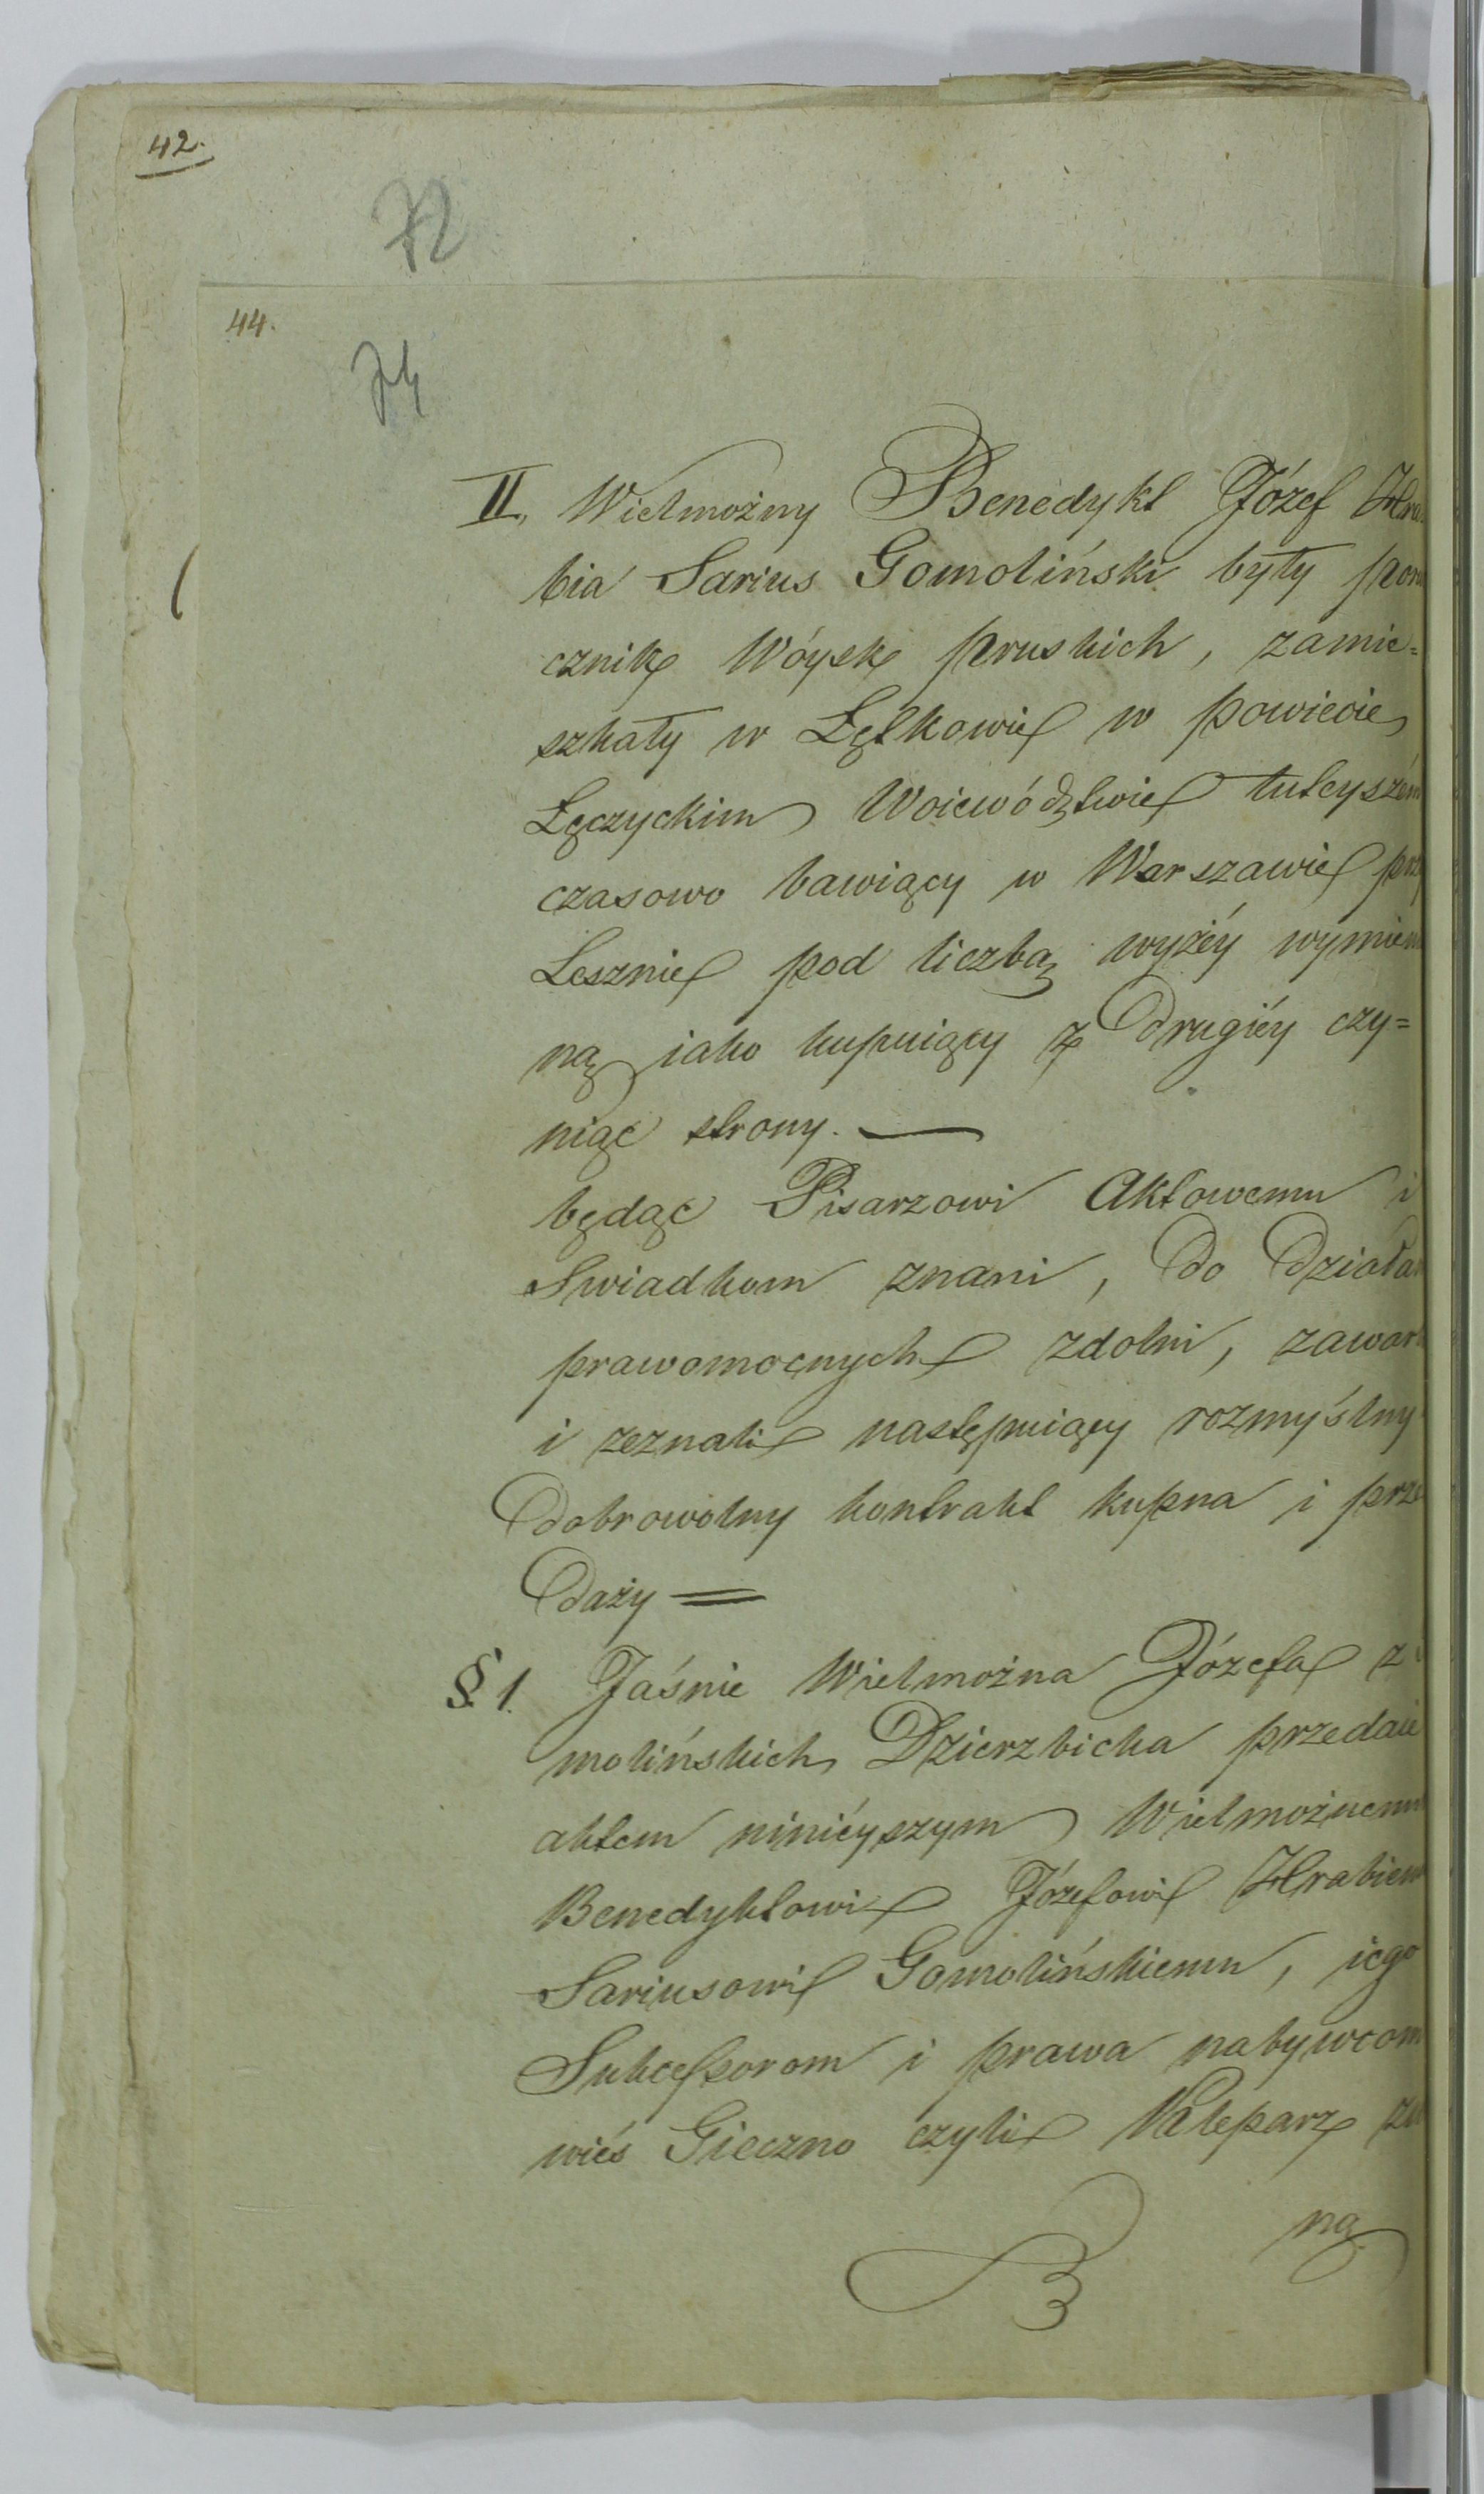 42.
72
44.
74
II, Wielmożny Benedykt Józef Hra
bia Sarius Gomoliński były por
cznik Wóysk pruskich, zamie=
szkały w Łętkowie w powiecie
Łęczyckim Woiewództwie tuteyszém
czasowo bawiący w Warszawie przy
Lesznie pod liczbą wyżéy wymien
ną iako kupuiący z drugiéy czy=
niąc strony. —
będąc Pisarzowi Aktowemu i
Swiadkom znani, do działań
prawomocnych zdolni, zawarl
i zeznali następuiący rozmyślny
dobrowolny kontrakt kupna i prze
daży =
§ 1. Jaśnie Wielmożna Józefa z
molińskich Dzierzbicka przedaie
aktem niniéyszym Wielmożnemu
Benedyktowi Józefowi Hrabiem
Sariusowi Gomolińskiemu, iego
Sukcessorom i prawa nabywcom
wieś Gieczno czyli Kleparz zw
ną